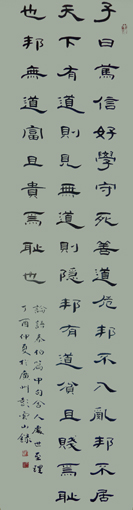 子曰篤信好學守死善道危邦不入亂邦不居
天下有道則見無道則隱邦有道貧且賤焉恥
也邦無道富且貴焉恥也
論語泰伯篇中句含人處世至理
丁酉仲夏於廣州彭雲山錄